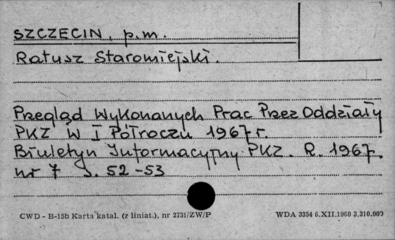 SZCZECIN, p.m.
Ratusz Staromiejski.
Przegląd Wykonanych Prac Przez Oddziały
PKZ W I Półroczu 1967 r.
Biuletyn Informacyjny PKZ. R. 1967.
nr 7 S. 52-53
CWD - B-15b Karta katal. (z liniat.), nr 2731/ZW/P WDA 3354 6.XII.1968 3.310.000